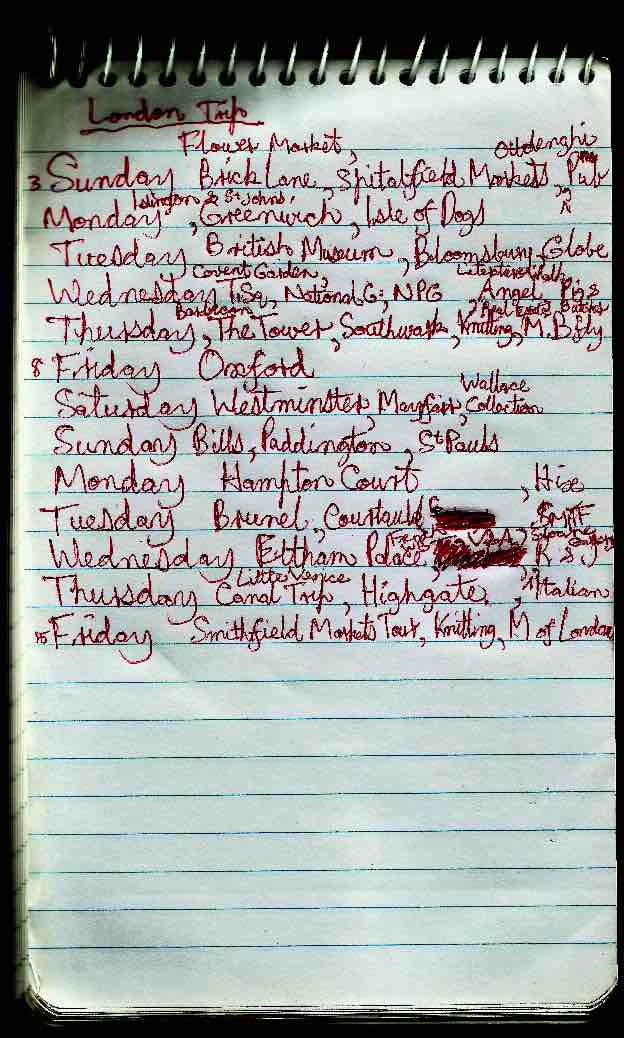 London Trip
Flower Market, Ottolenghi
3 Sunday Brick Lane, Spitalfield Markets, Pub
Islington & St Johns,
Monday, Greenwich, Isle of Dogs
Tuesday British Museum, Bloomsbury, Globe
Covent Garden, Walk
Wednesday T.Sq, National G; NPG, Angel, Pigs
Barbican
Thursday, The Tower, Southwark, Knitting, M.Bfly
8 Friday Oxford
Wallace
Saturday Westminster, Mayfair, Collection
Sunday Bills, Paddington, St Pauls
Monday Hampton Court, Hix
Tuesday Brunel, Courtauld,
V&A,
Wednesday Eltham Palace, R & J
Little Venice
Thursday Canal Trip, Highgate, Italian
15 Friday Smithfield Markets Tour, Knitting, M of London